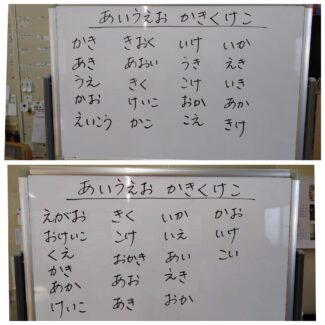 あいうえお かきくけこ
かき きおく いけ いか
あき あおい うき えき
うえ きく こけ いき
かお けいこ おか あか
えいこう かこ こえ きけ
あいうえお かきくけこ
えがお きく いか かお
おけいこ こけ いえ いけ
くえ おかき あい こい
かき あお えき
あか あき おか
けいこ